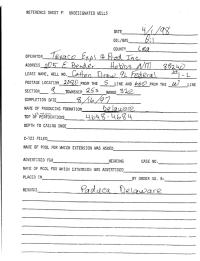 REFERENCE SHEET F UNDESIGNATED WELLS
DATE 4/1/98
OIL/GAS Oil
COUNTY Lea
OPERATOR Texaco Expl & Prod Inc
ADDRESS 205 E Bender Hobbs NM 88240
LEASE NAME, WELL NO. Cotton Draw 92 Federal - L
FOOTAGE LOCATION 2180 FROM THE S LINE AND 660 FROM THE W LINE
SECTION 9 TOWNSHIP 25S RANGE 32E
COMPLETION DATE 8/16/97
NAME OF PRODUCING FORMATION Delaware
TOP OF PERFORATIONS 4648-4684
DEPTH TO CASING SHOE
C-123 FILED
NAME OF POOL FOR WHICH EXTENSION WAS ASKED
ADVERTISED FOR HEARING CASE NO.
NAME OF POOL FOR WHICH EXTENSION WAS ADVERTISED
PLACED IN BY ORDER NO. R-
REMARKS Paduca Delaware